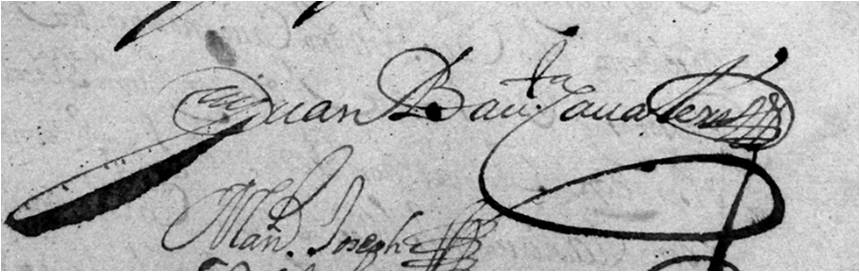 Juan Bauta Cavallero
Manl. Joseph